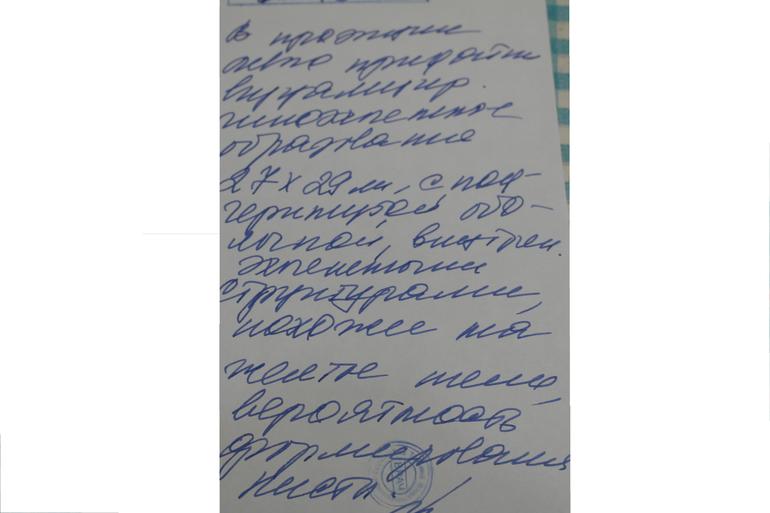 В проекции
лево придатка
визуализир.
гипоэхогенное
образование
27 х 29 мм, с под-
черкнутой обо-
лочкой, внутрен.
эхогенными
структурами,
похожее на
желтое тело,
вероятность
формирования
кисты.